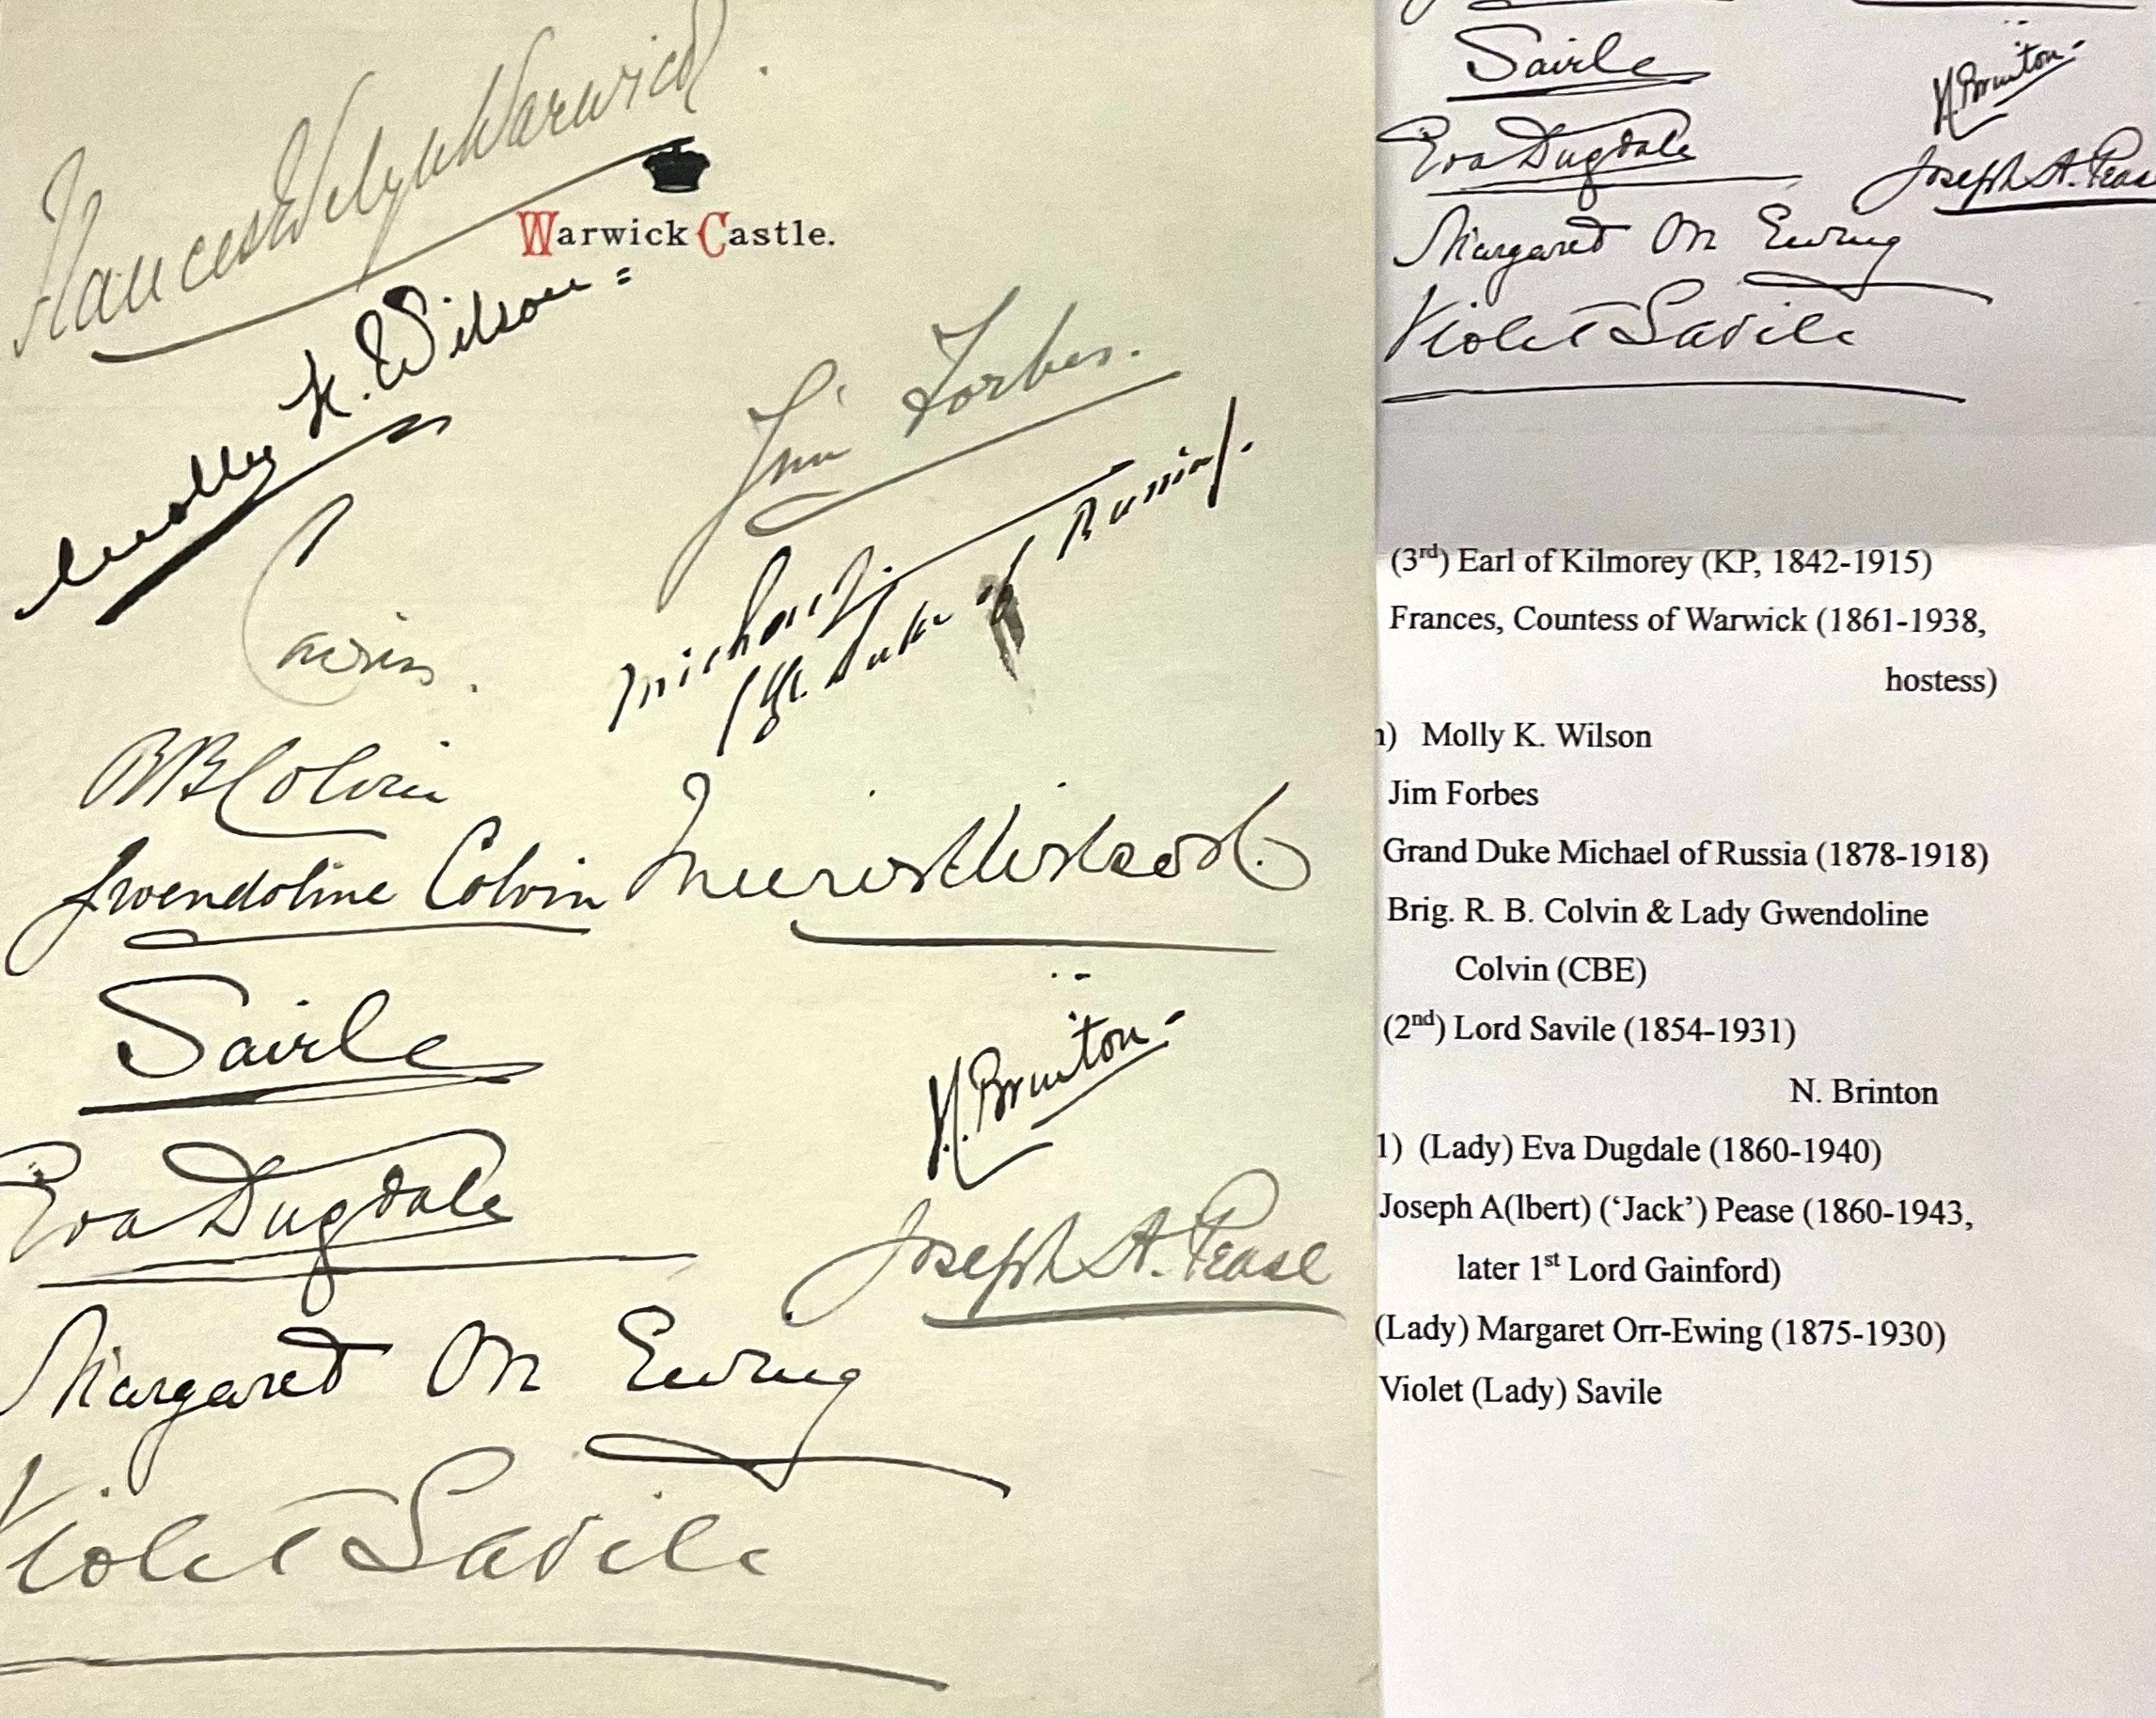 Frances Evelyn Warwick.
Warwick Castle.
Molly K. Wilson =
Jim Forbes.
Cairns.
Michael
Gr. Duke of Russia.
RB Colvin
Gwendoline Colvin
Savile
N. Brinton
Eva Dugdale
Joseph A. Pease
Margaret Orr Ewing
Violet Savile
Savile
N. Brinton
Eva Dugdale
Joseph A. Peas
Margaret Orr Ewing
Violet Savile
(3rd) Earl of Kilmorey (KP, 1842-1915)
Frances, Countess of Warwick (1861-1938,
hostess)
n) Molly K. Wilson
Jim Forbes
Grand Duke Michael of Russia (1878-1918)
Brig. R. B. Colvin & Lady Gwendoline
Colvin (CBE)
(2nd) Lord Savile (1854-1931)
N. Brinton
l) (Lady) Eva Dugdale (1860-1940)
Joseph A(lbert) (‘Jack’) Pease (1860-1943,
later 1st Lord Gainford)
(Lady) Margaret Orr-Ewing (1875-1930)
Violet (Lady) Savile